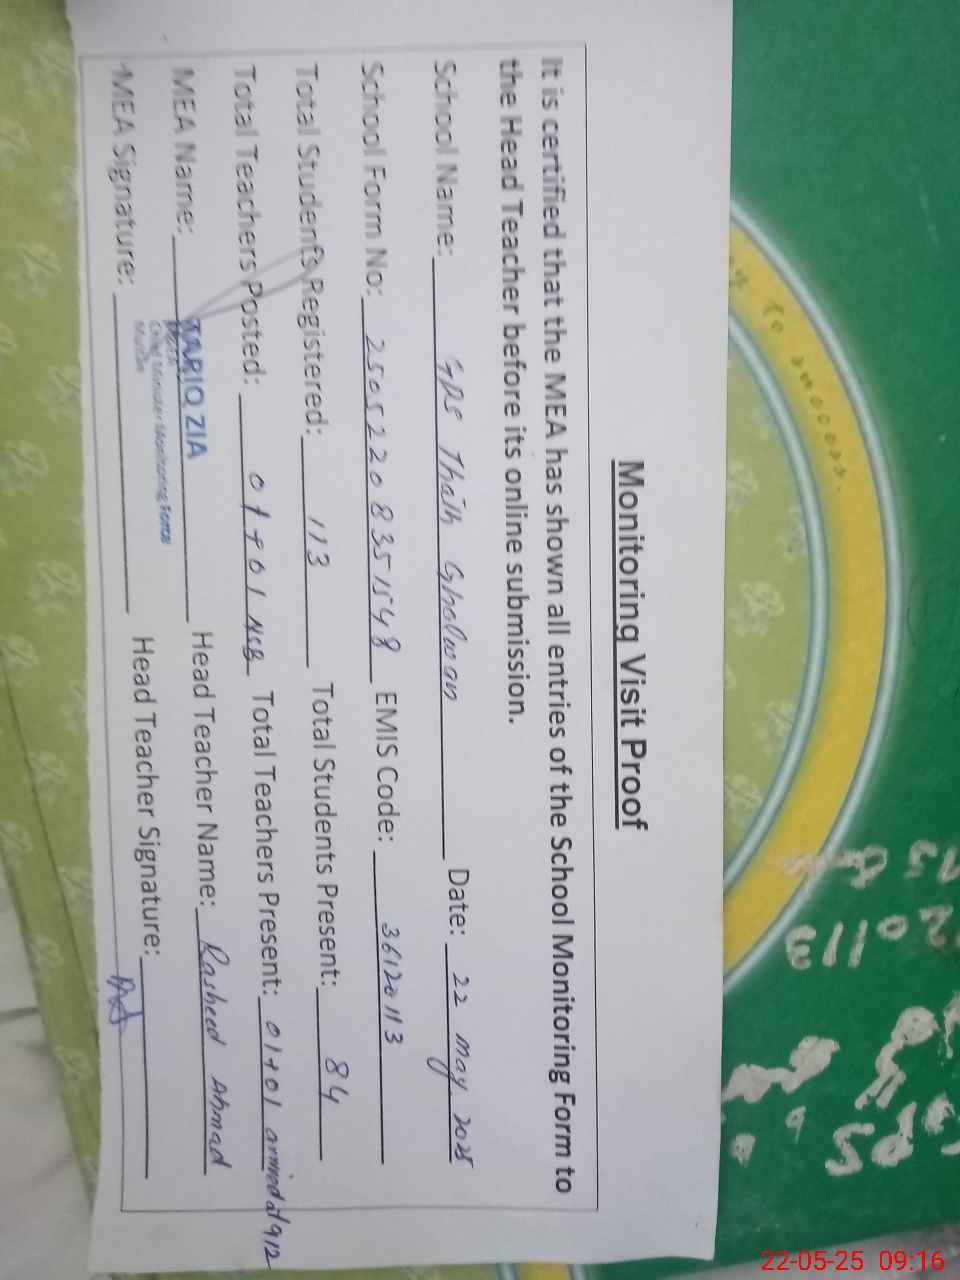 Monitoring Visit Proof
It is certified that the MEA has shown all entries of the School Monitoring Form to
the Head Teacher before its online submission.
School Name: GPS Thath Gholwan Date: 22 may 2025
School Form No: 25052208351548 EMIS Code: 36120113
Total Students Registered: 113 Total Students Present: 84
Total Teachers Posted: 01+01 NSB Total Teachers Present: 01+01 arrived at 912
MEA Name: TARIQ ZIA Head Teacher Name: Rasheed Ahmad
Chief Minister Monitoring Force
MEA Signature: Head Teacher Signature:
to success
20113
22-05-25 09:16